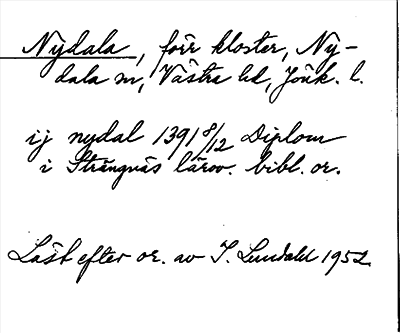 Nydala, förr kloster, Ny-
dala sn, Västra hd, Jönk. l.
ij nydal 1391 8/12 Diplom
i Strängnäs lärov. bibl. or.
Läst efter or. av I. Lundahl 1952.